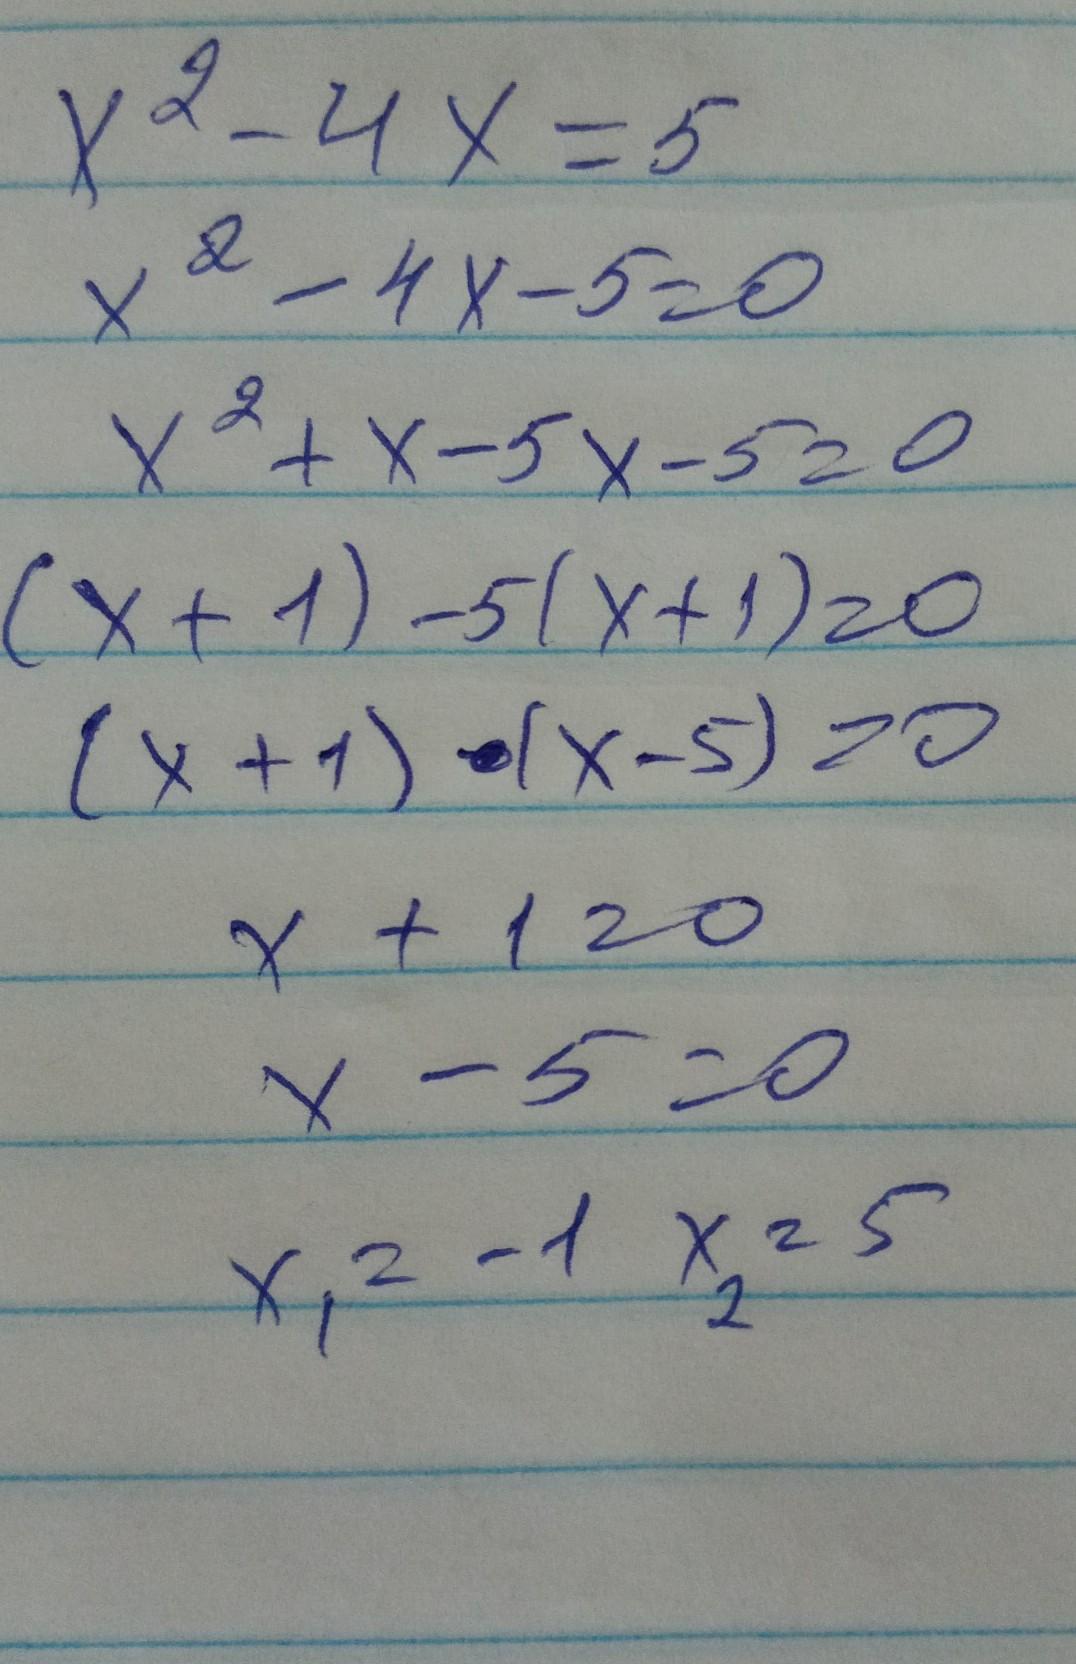 x² - 4x = 5
x² - 4x - 5 = 0
x² + x - 5x - 5 = 0
(x + 1) - 5(x + 1) = 0
(x + 1) • (x - 5) = 0
x + 1 = 0
x - 5 = 0
x₁ = -1 x₂ = 5